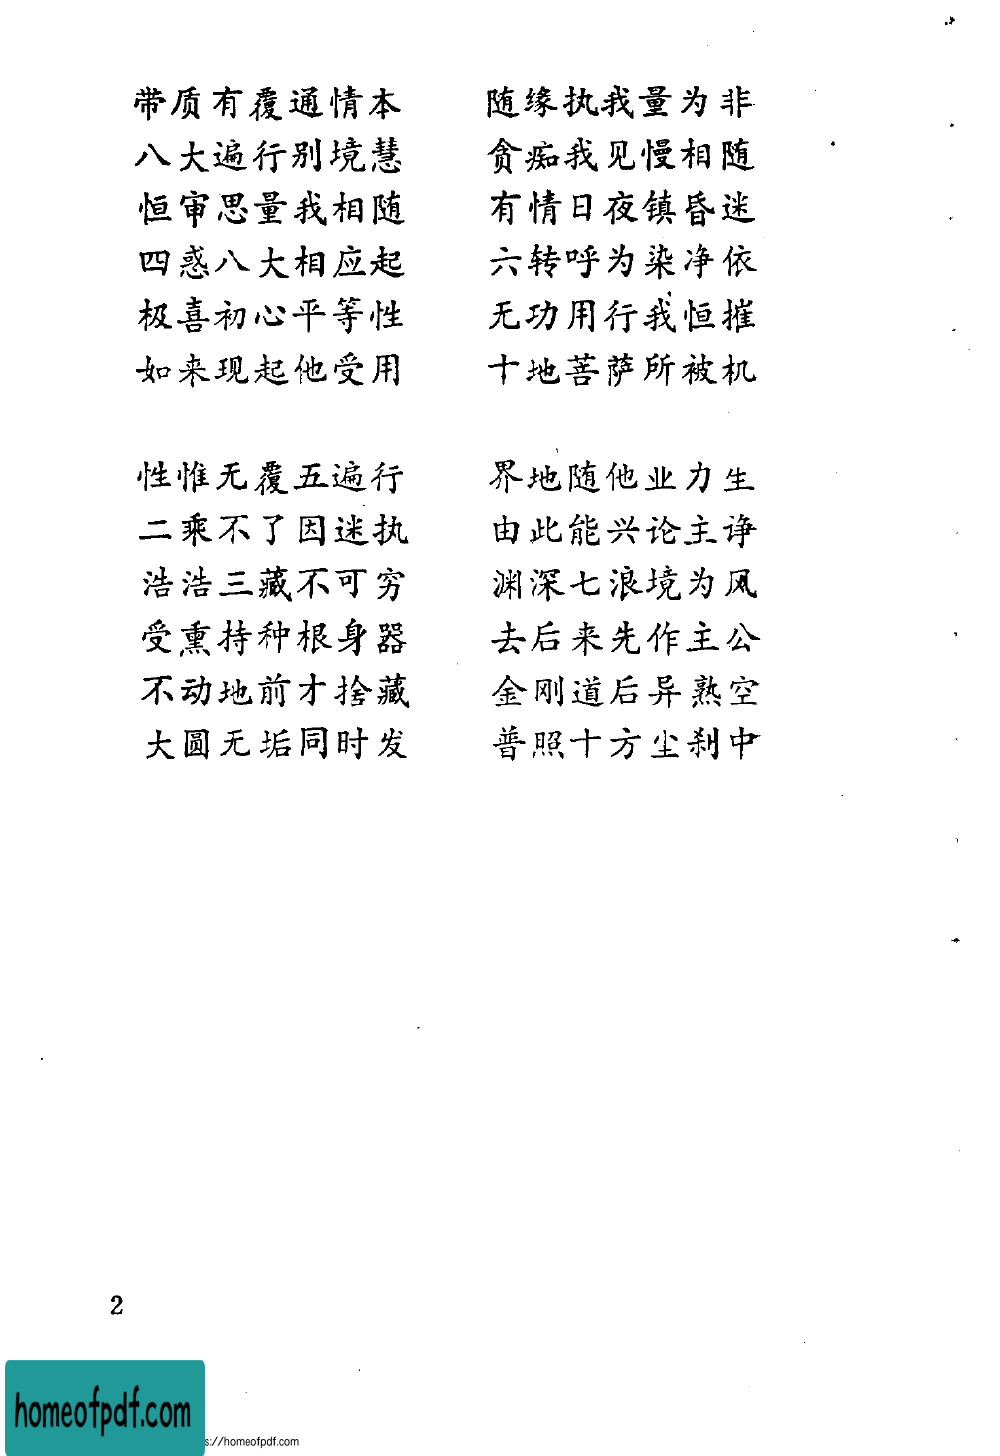 带质有覆通情本 随缘执我量为非
八大遍行别境慧 贪痴我见慢相随
恒审思量我相随 有情日夜镇昏迷
四惑八大相应起 六转呼为染净依
极喜初心平等性 无功用行我恒摧
如来现起他受用 十地菩萨所被机
性惟无覆五遍行 界地随他业力生
二乘不了因迷执 由此能兴论主诤
浩浩三藏不可穷 渊深七浪境为风
受熏持种根身器 去后来先作主公
不动地前才捨藏 金刚道后异熟空
大圆无垢同时发 普照十方尘刹中
2
homeofpdf.com
s://homeofpdf.com